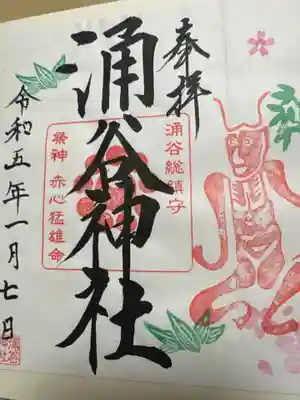 奉拝
涌谷総鎮守
涌谷神社
祭神 赤心猛雄命
令和五年一月七日